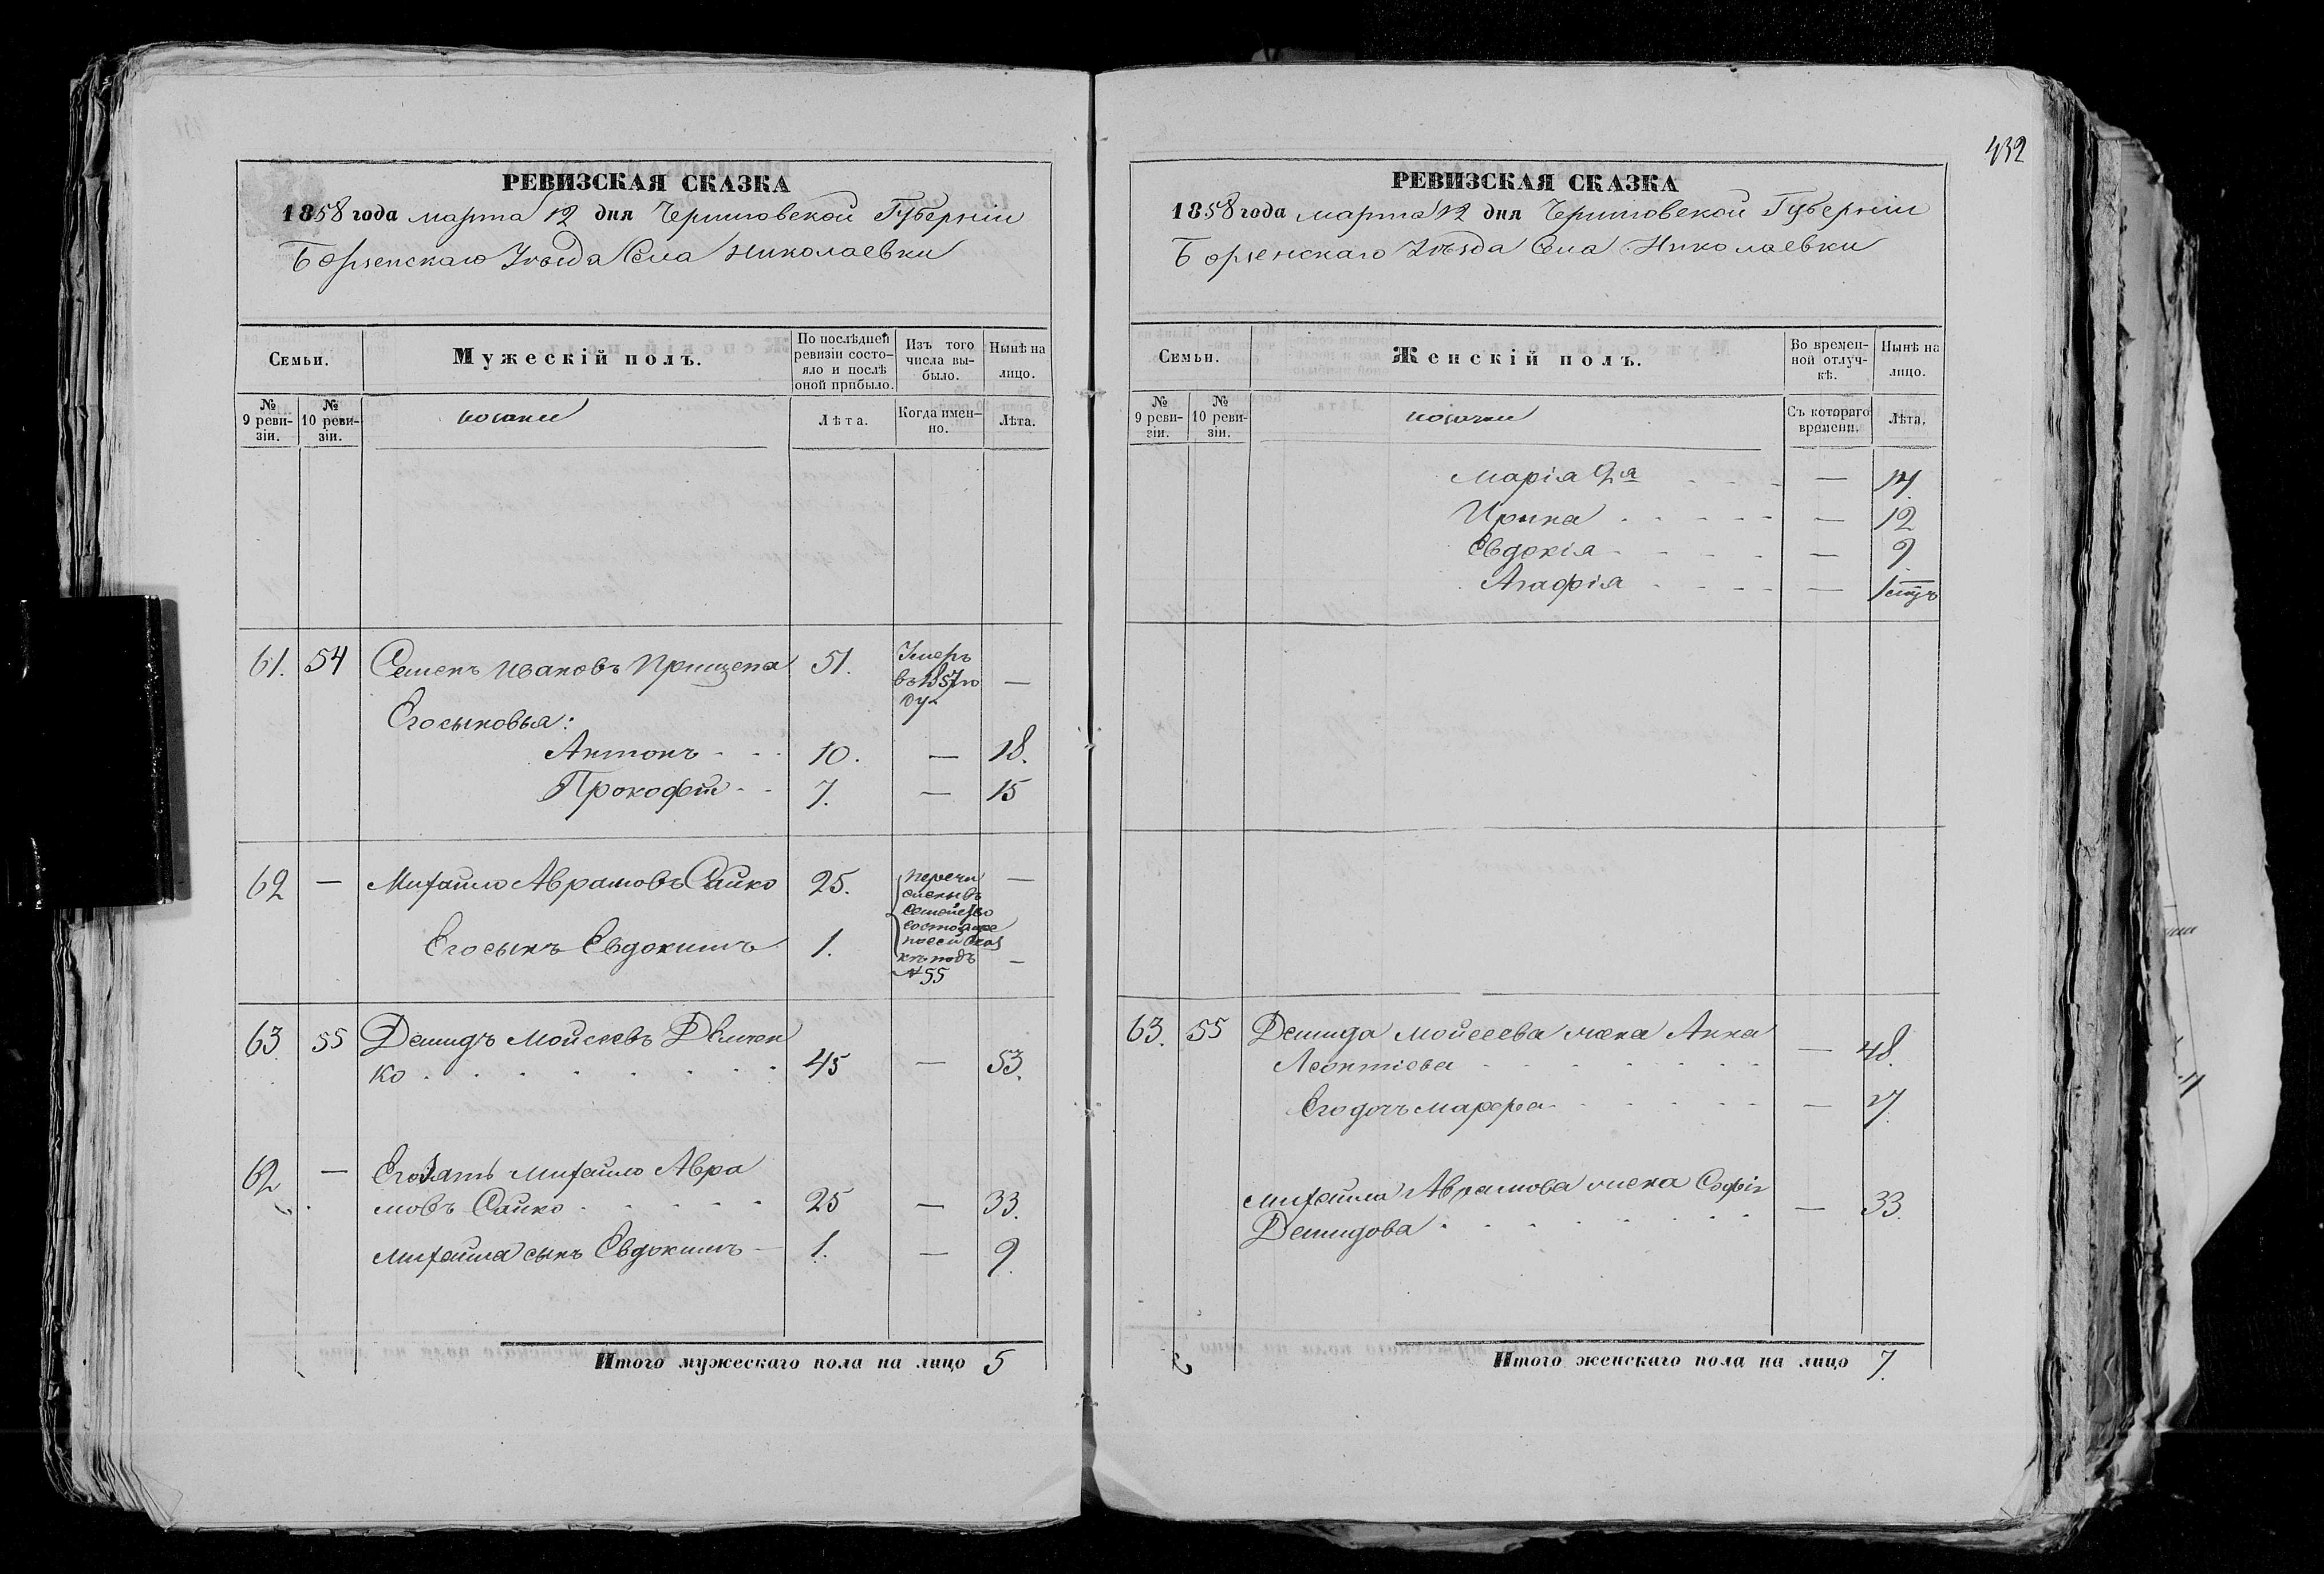 432
РЕВИЗСКАЯ СКАЗКА
1858 года марта 12 дня Черниговской Губерніи
Борзенскаго Уѣзда Села Николаевки
Семьи.
Мужескій полъ.
По послѣдней ревизіи состояло и послѣ оной прибыло.
Изъ того числа выбыло.
Нынѣ на лицо.
№ 9 ревизіи.
№ 10 ревизіи.
козаки
Лѣта.
Когда именно.
Лѣта.
61. 54 Семенъ Ивановъ Прищепа 51. Умеръ въ 1857 году —
Его сыновья:
Антонъ 10. — 18.
Прокофій 7. — 15
62 — Михайло Аврамовъ Сайко 25. —
Перечи
сленъ въ
семейство
подъ
№ 55
Его сынъ Евдокимъ 1. —
63 55 Демидъ Мойсеевъ
ко 45 — 53.
62 — Его зять Михайло Авра
мовъ Сайко 25 — 33.
Михайла сынъ Евдокимъ 1. — 9.
Итого мужескаго пола на лицо 5
РЕВИЗСКАЯ СКАЗКА
1858 года марта 12 дня Черниговской Губерніи
Борзенскаго Уѣзда Села Николаевки
Семьи.
Женскій полъ.
Во временной отлучкѣ.
Нынѣ на лицо.
№ 9 ревизіи.
№ 10 ревизіи.
козачки
Съ котораго времени.
Лѣта.
Марія 2я —
Ирина — 12
Евдокія — 9
Агафія —
63. 55 Демида Мойсеева жена Анна
Леонтіева — 48.
Его дочь Марфа —
Михайла Аврамова жена Софія
Демидова — 33.
Итого женскаго пола на лицо 7.